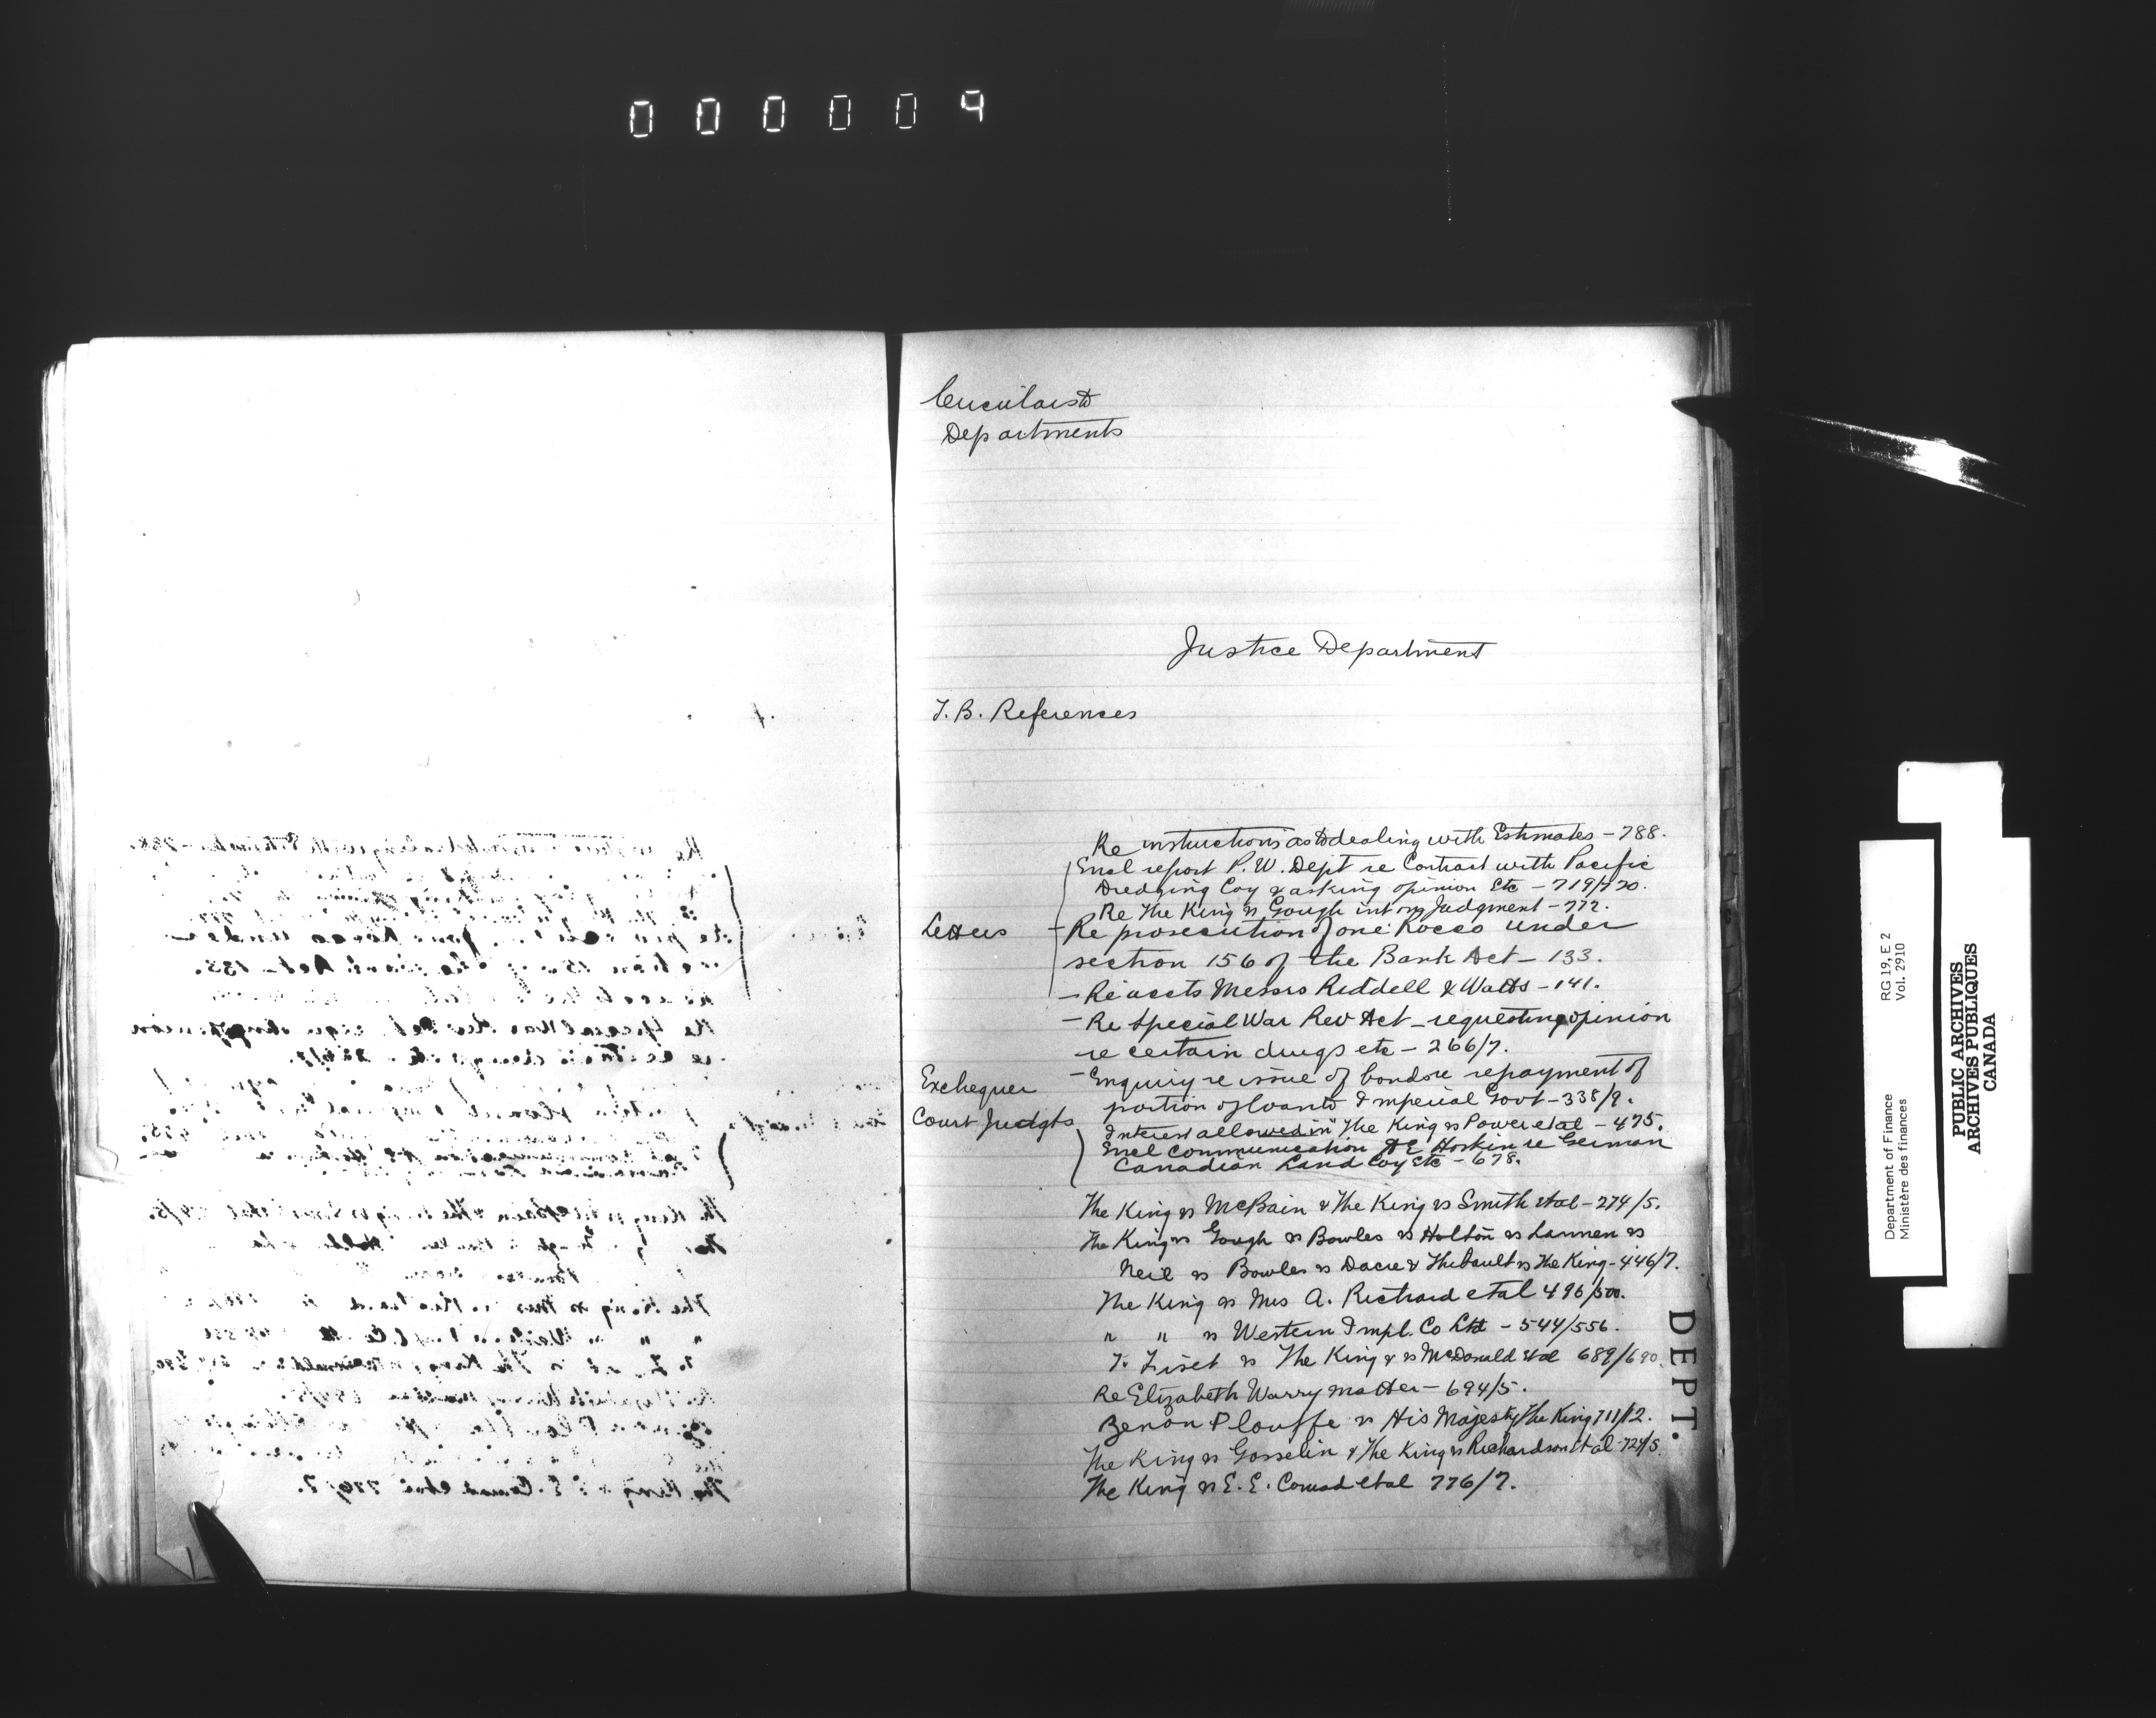 000009
Circulars to
Departments
Justice Department
T. B. References
Re instructions as to dealing with Estimates - 788.
Encl report P. W. Dept re Contract with Pacific
Dredging Coy & asking opinion etc - 719/720.
Re The King vs Gough int on Judgment - 772.
Letters - Re prosecution of one Rocco under
section 156 of the Bank Act - 133.
- Re accts Messrs Riddell & Watts - 141.
- Re Special War Rev Act - requesting opinion
re certain drugs etc - 266/7.
Exchequer
Court Judgts
- Enquiry re issue of bonds re repayment of
portion of loan to Imperial Govt - 338/9.
Interest allowed in "The King vs Power et al - 475.
Encl communication A E Hoskin re German
Canadian Land Coy etc - 678.
The King vs McBain & The King vs Smith et al - 274/5.
The King vs Gough vs Bowles vs Holton vs Lannen vs
Neil vs Bowles vs Dacre & Thibault vs The King - 446/7.
The King vs Mrs A. Richard et al 496/500.
" " vs Western Impl. Co Ltd - 544/556.
T. Liset vs The King & vs McDonald et al 689/690.
Re Elizabeth Warry matter - 694/5.
Zenon Plouffe vs His Majesty The King 711/12.
The King vs Gosselin & The King vs Richardson et al - 724/5.
The King vs E. E. Conrad et al 776/7.
DEPT.
Department of Finance
Ministère des finances
RG 19, E 2
Vol. 2910
PUBLIC ARCHIVES
ARCHIVES PUBLIQUES
CANADA